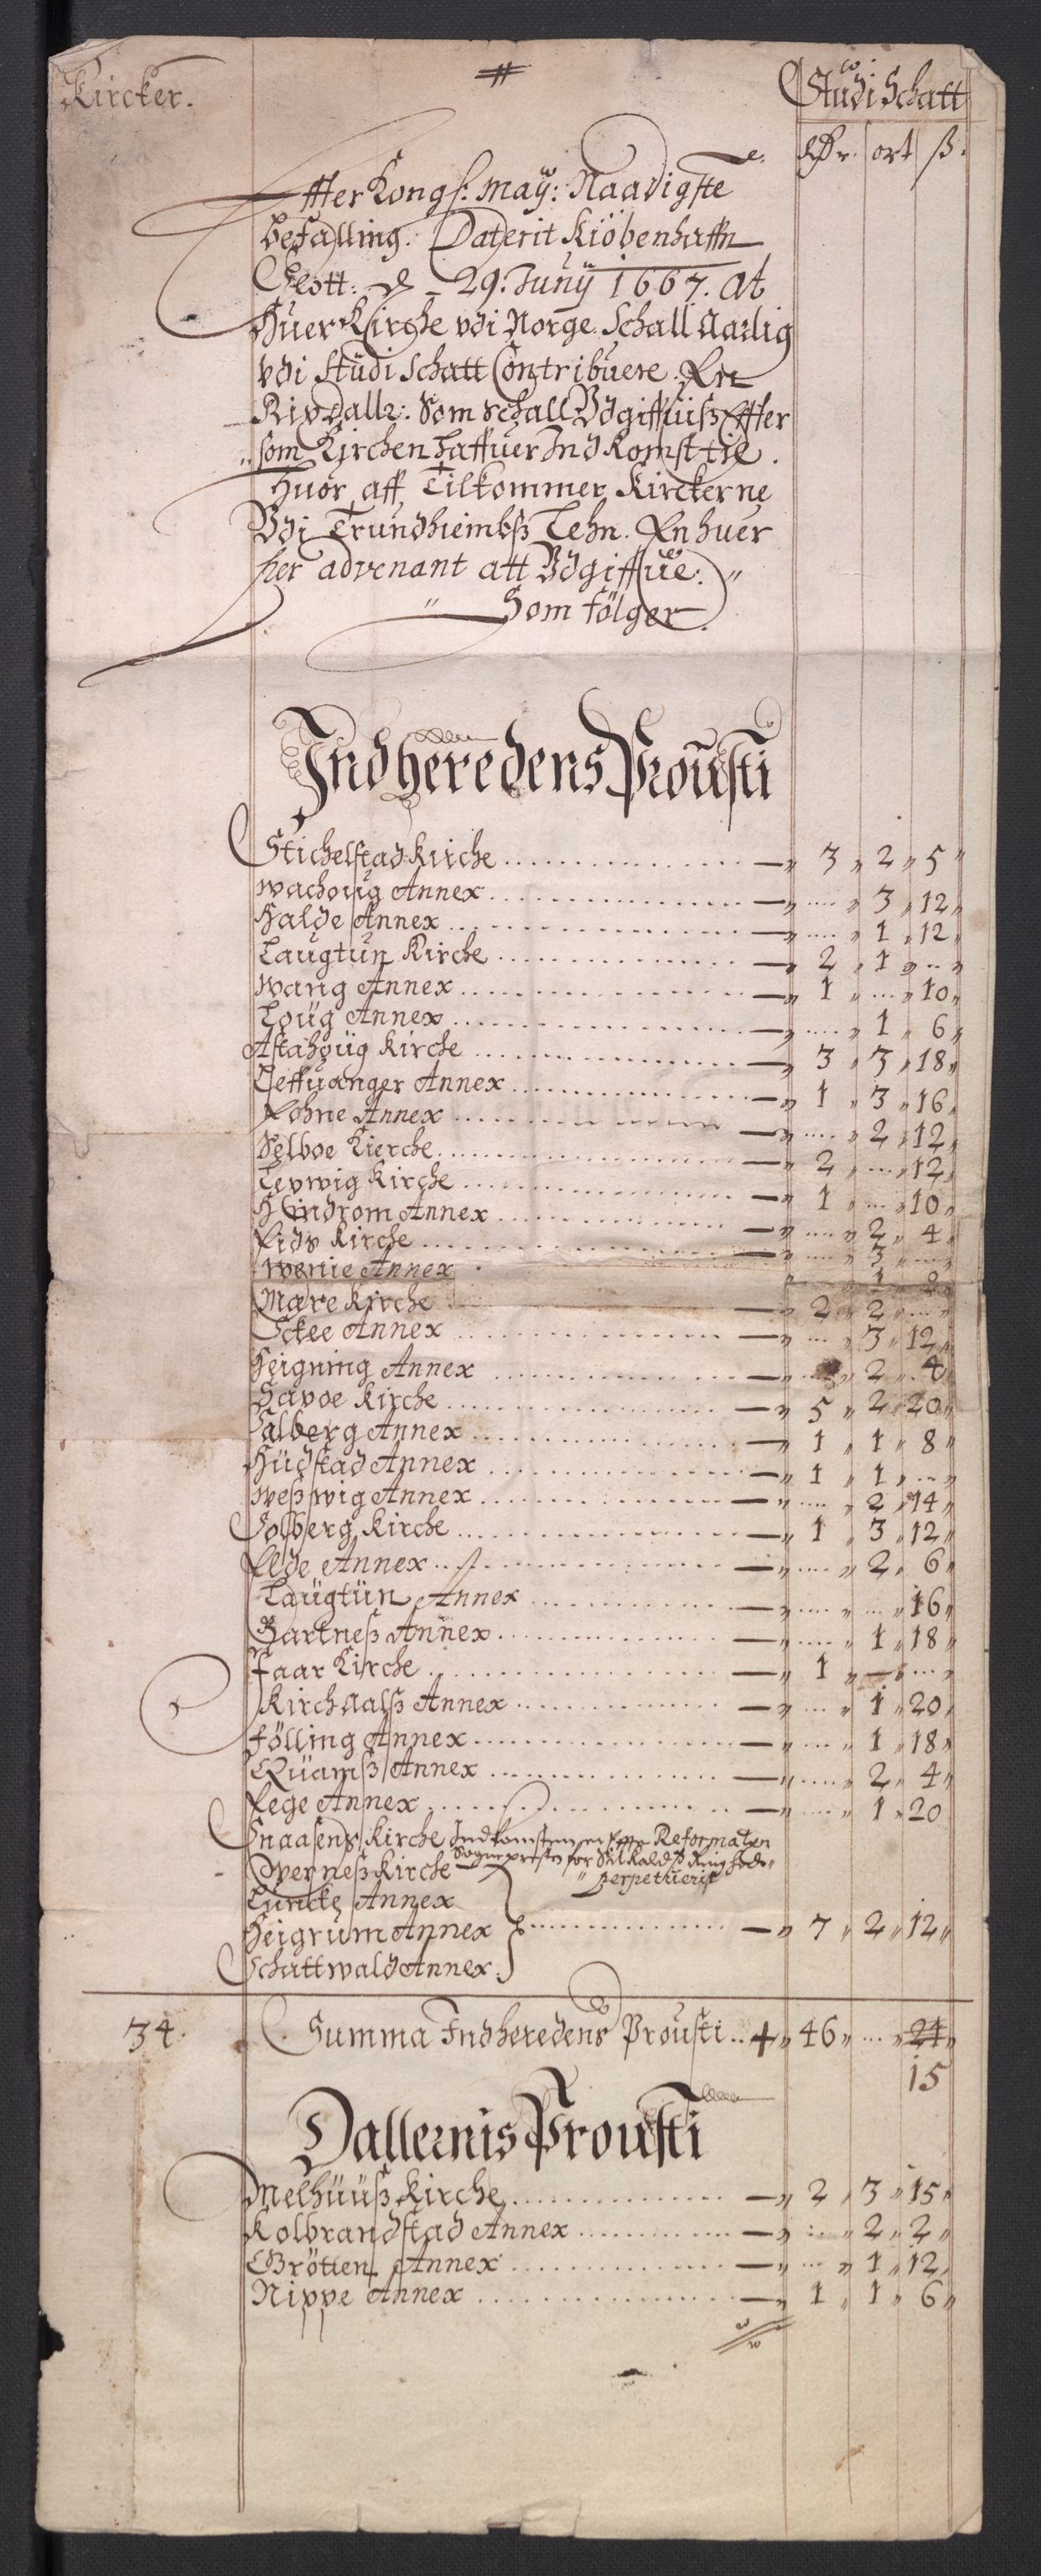 Kircker.
Studi Schatt
Rdr. ort ß.
Effter Kongl: May: Naadigste
befalling. Daterit Kiöbenhaffn
Slott: d 29: Junÿ 1667. At
Huer Kirche udi Norge Schall Aarlig
udi Studi Schatt Contribuere. En
Rixdallr: Som Schall Udgiffuiß Effter
som Kirchen haffuer Indkomst til.
Huor aff Tilkommer Kirckerne
Udi Trundhiembß Lehn. En huer
her advenant att Udgiffue:
Som fölger
Indheredens Prousti
Stichelstad Kirche 3 2 5
Wachoug Annex 3 12
Halde Annex 1 12
Laugtun Kirche 2 1
Wang Annex 1 10
Loug Annex 1 6
Astahoug Kirche 3 3 18
Leffuanger Annex 1 3 16
Eohne Annex 2 12
Selboe Kierche 2 12
Lexwig Kirche 1 10
Hindrom Annex 2 4
Eids Kirche 3
Werie Annex 1 8
Mære Kirche 2 2
Eckee Annex 3 12
Heigning Annex 2 4
Saxoe Kirche 5 2 20
Salberg Annex 1 1 8
Hudstad Annex 1 1
Weßwig Annex 2 14
Solberg Kirche 1 3 12
Elde Annex 2 6
Laugtun Annex 16
Bartneß Annex 1 18
Faar Kirche 1
Kirchaalß Annex 1 20
Fölling Annex 1 18
Quamß Annex 2 4
Eege Annex 1 20
Snaasens Kirche Indkomstem er Reformaten
Sogneprestn for
perpetuerit
Werneß Kirche
Luncke Annex
Heigrum Annex 7 2 12
Schattwald Annex
34. Summa Indheredens Prousti 46 24
15
Dallernis Prousti
Melhuuß Kirche 2 3 15
Kolbrandstad Annex 2 2
Grötten Annex 1 12
Nippe Annex 1 1 6